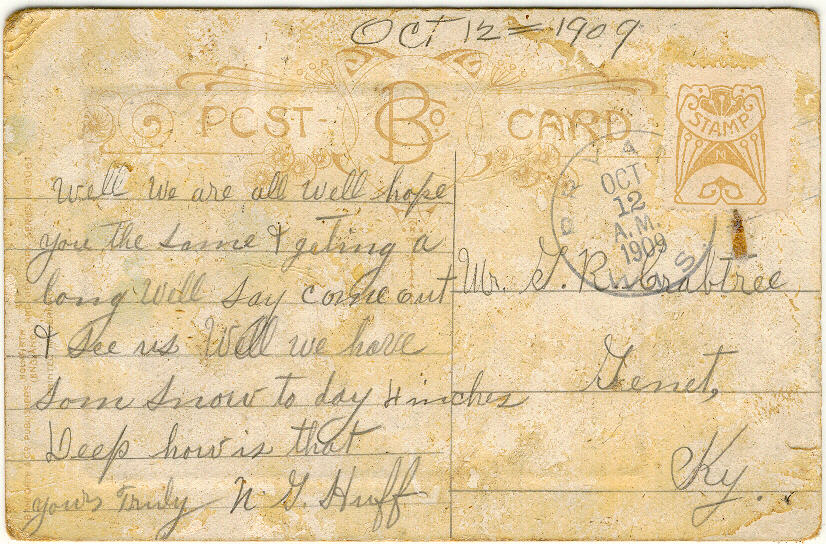 OCT 12 = 1909
POST CARD
B Co
STAMP
OCT
12
A.M.
1909
WIS.
Well We are all Well hope
you the same & geting a
long Well Say come out
& See us Well we have
som snow to day 4 inches
Deep how is that
yours Truly N G Huff
Mr. G. R. Crabtree
Genet,
Ky.